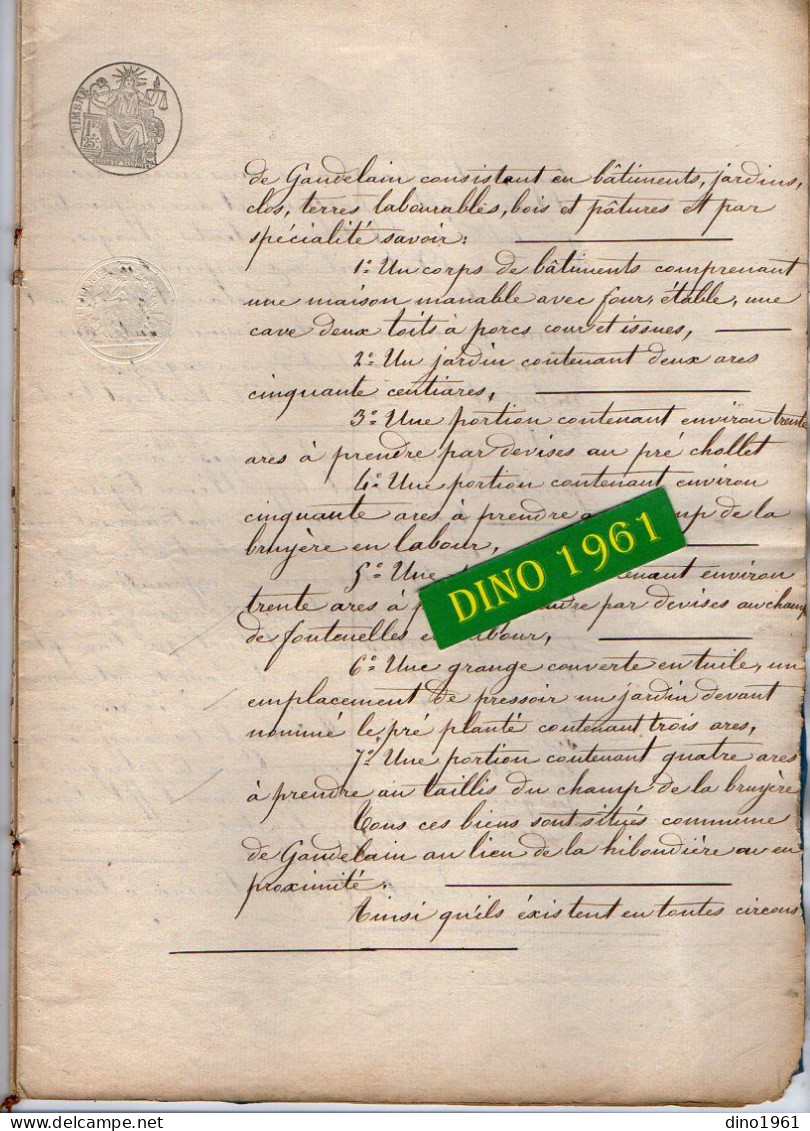 TIMBRE
de Gandelain consistant en bâtiments, jardins,
clos, terres labourables, bois et pâtures et par
spécialité savoir:
1º Un corps de bâtiments comprenant
une maison manable avec four, étable, une
cave deux toits à porcs cour et issues,
2º Un jardin contenant deux ares
cinquante centiares,
3º Une portion contenant environ trente
ares à prendre par devises au pré chollet
4º Une portion contenant environ
cinquante ares à prendre de la
bruyère en labour,
5º Une environ
trente ares à par devises au champ
de fontenelles labour,
6º Une grange couverte en tuile, un
emplacement de pressoir un jardin devant
nommé le pré planté contenant trois ares,
7º Une portion contenant quatre ares
à prendre au taillis du champ de la bruyère
Tous ces biens sont situés commune
de Gandelain au lieu de la hiboudière ou en
proximité.
Ainsi qu'ils éxistent en toutes circons
DINO 1961
dino1961